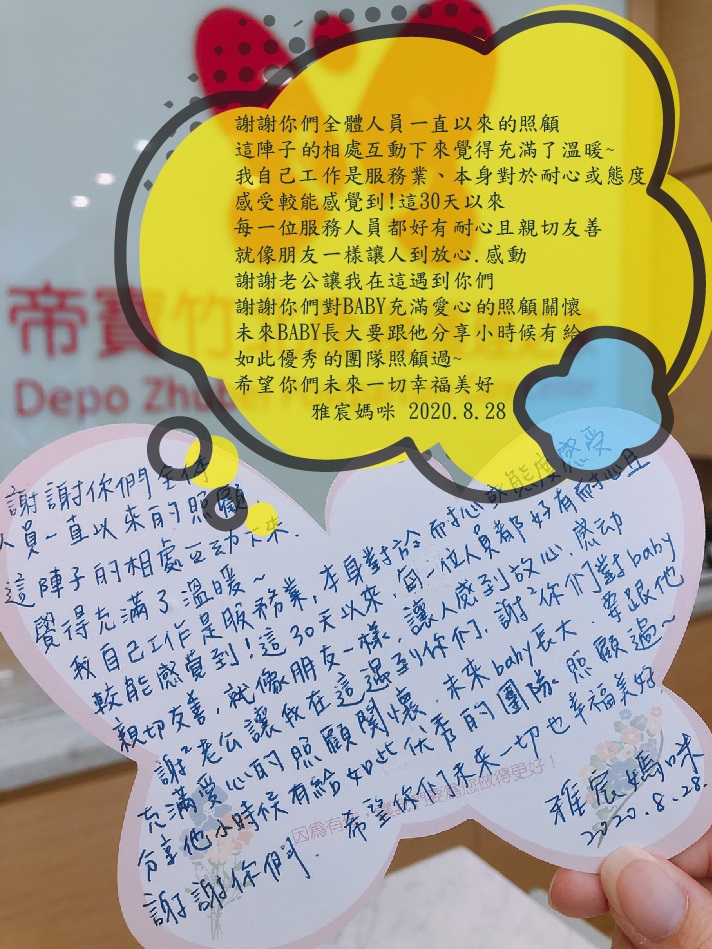 謝謝你們全體人員一直以來的照顧
這陣子的相處互動下來覺得充滿了溫暖~
我自己工作是服務業、本身對於耐心或態度
感受較能感覺到!這30天以來
每一位服務人員都好有耐心且親切友善
就像朋友一樣讓人到放心.感動
謝謝老公讓我在這遇到你們
謝謝你們對BABY充滿愛心的照顧關懷
未來BABY長大要跟他分享小時候有給
如此優秀的團隊照顧過~
希望你們未來一切幸福美好
雅宸媽咪 2020.8.28
帝寶竹
Depo Zhubei
謝謝你們全体
人員一直以來的照顧.
這陣子的相處互動下來.
覺得充滿了溫暖~
我自己工作是服務業,本身對於耐心或態度感受
較能感覺到!這30天以來,每一位人員都好有耐心且
親切友善,就像朋友一樣,讓人感到放心.感动
謝²老公讓我在這遇到你们,謝²你们對baby
充滿愛心的照顧関懷.未來baby長大.要跟他
分享他小時候有給如此优秀的團隊照顧過~
謝謝你們.希望你们未來一切也幸福美好.
因為有
做得更好!
雅宸媽咪
2020.8.28.